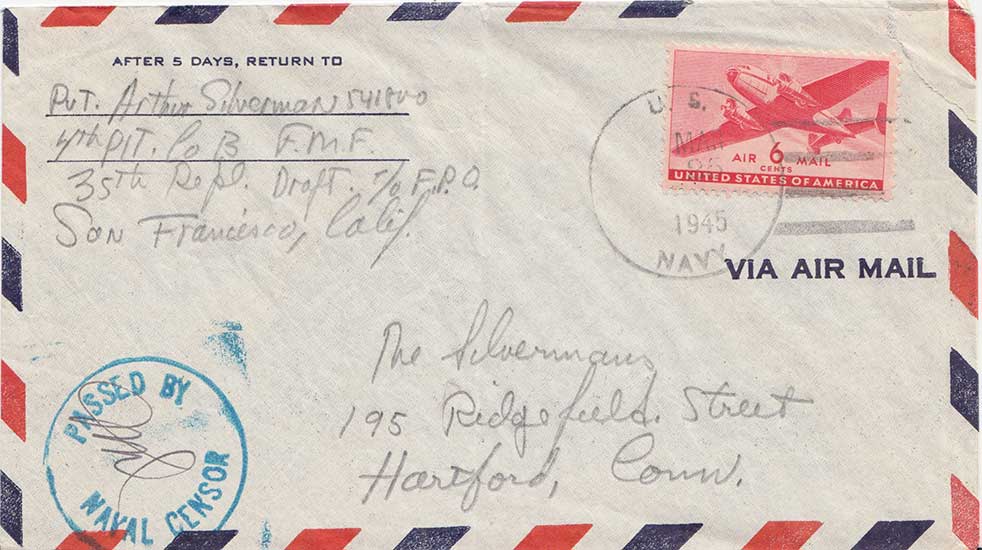 AFTER 5 DAYS, RETURN TO
Pvt. Arthur Silverman 541800
4th Plt. Co B F.M.F.
35th Repl. Draft. c/o F.P.O.
San Francisco, Calif.
U. S.
MAR
1945
NAVY
AIR 6 MAIL
CENTS
UNITED STATES OF AMERICA
VIA AIR MAIL
The Silvermans,
195 Ridgefield Street
Hartford, Conn.
PASSED BY
NAVAL CENSOR